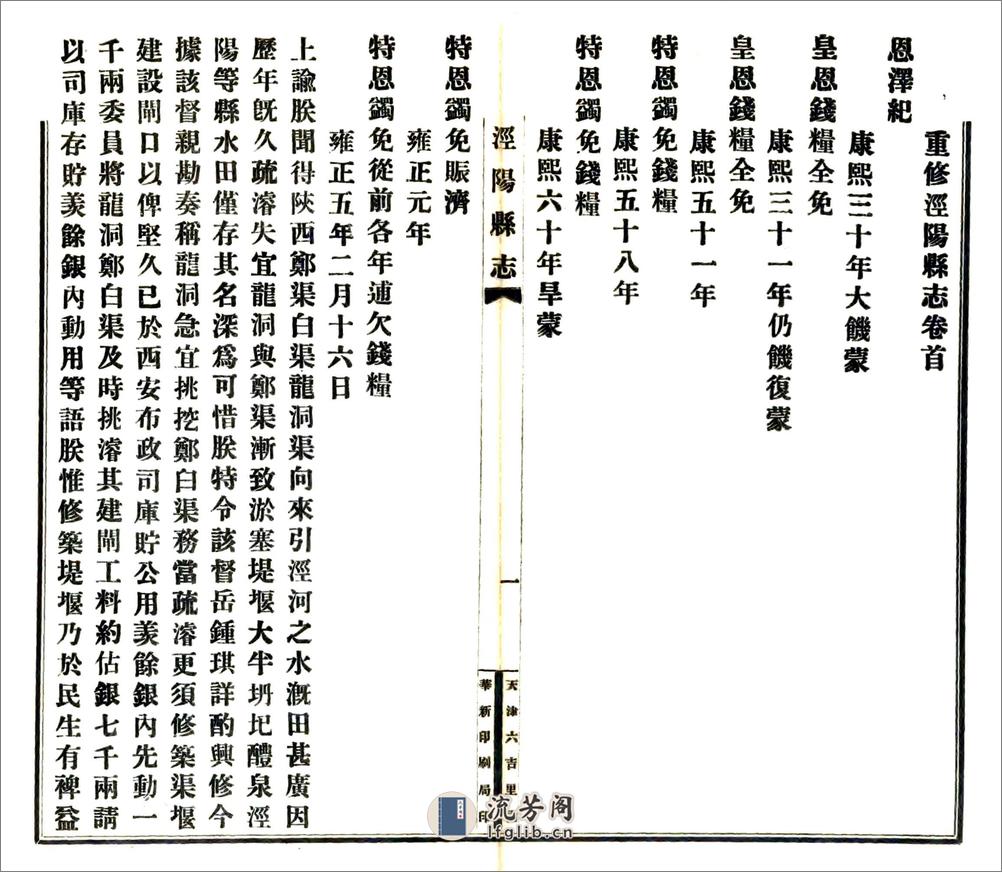 重修涇陽縣志卷首
恩澤紀
康熙三十年大饑蒙
皇恩錢糧全免
康熙三十一年仍饑復蒙
皇恩錢糧全免
康熙五十一年
特恩蠲免錢糧
康熙五十八年
特恩蠲免錢糧
康熙六十年旱蒙
涇陽縣志
一
天津六吉里
華新印刷局印
特恩蠲免賑濟
雍正元年
特恩蠲免從前各年逋欠錢糧
雍正五年二月十六日
上諭朕聞得陝西鄭渠白渠龍洞渠向來引涇河之水漑田甚廣因
歷年旣久疏濬失宜龍洞與鄭渠漸致淤塞堤堰大半坍圮醴泉涇
陽等縣水田僅存其名深爲可惜朕特令該督岳鍾琪詳酌興修今
據該督親勘奏稱龍洞急宜挑挖鄭白渠務當疏濬更須修築渠堰
建設閘口以俾堅久已於西安布政司庫貯公用羡餘銀內先動一
千兩委員將龍洞鄭白渠及時挑濬其建閘工料約估銀七千兩請
以司庫存貯羡餘銀內動用等語朕惟修築堤堰乃於民生有裨益
流芳阁
lfglib.cn